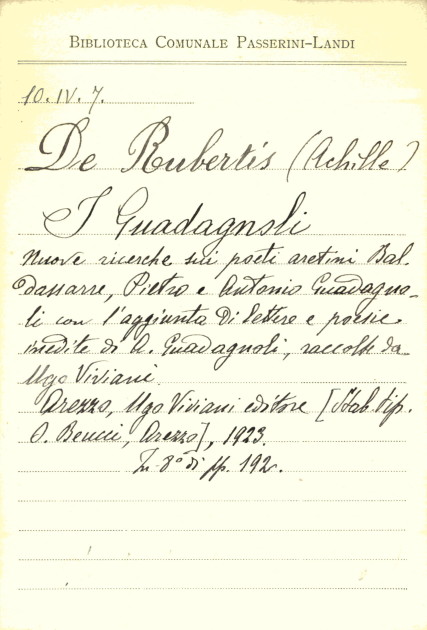 BIBLIOTECA COMUNALE PASSERINI-LANDI
10. IV. 7.
De Rubertis (Achille)
I Guadagnoli
Nuove ricerche sui poeti aretini Bal-
dassarre, Pietro e Antonio Guadagno-
li con l'aggiunta di lettere e poesie
inedite di A. Guadagnoli, raccolte da
Ugo Viviani.
Arezzo, Ugo Viviani editore [Stab. tip.
O. Beucci, Arezzo], 1923.
In 8° di pp. 192.